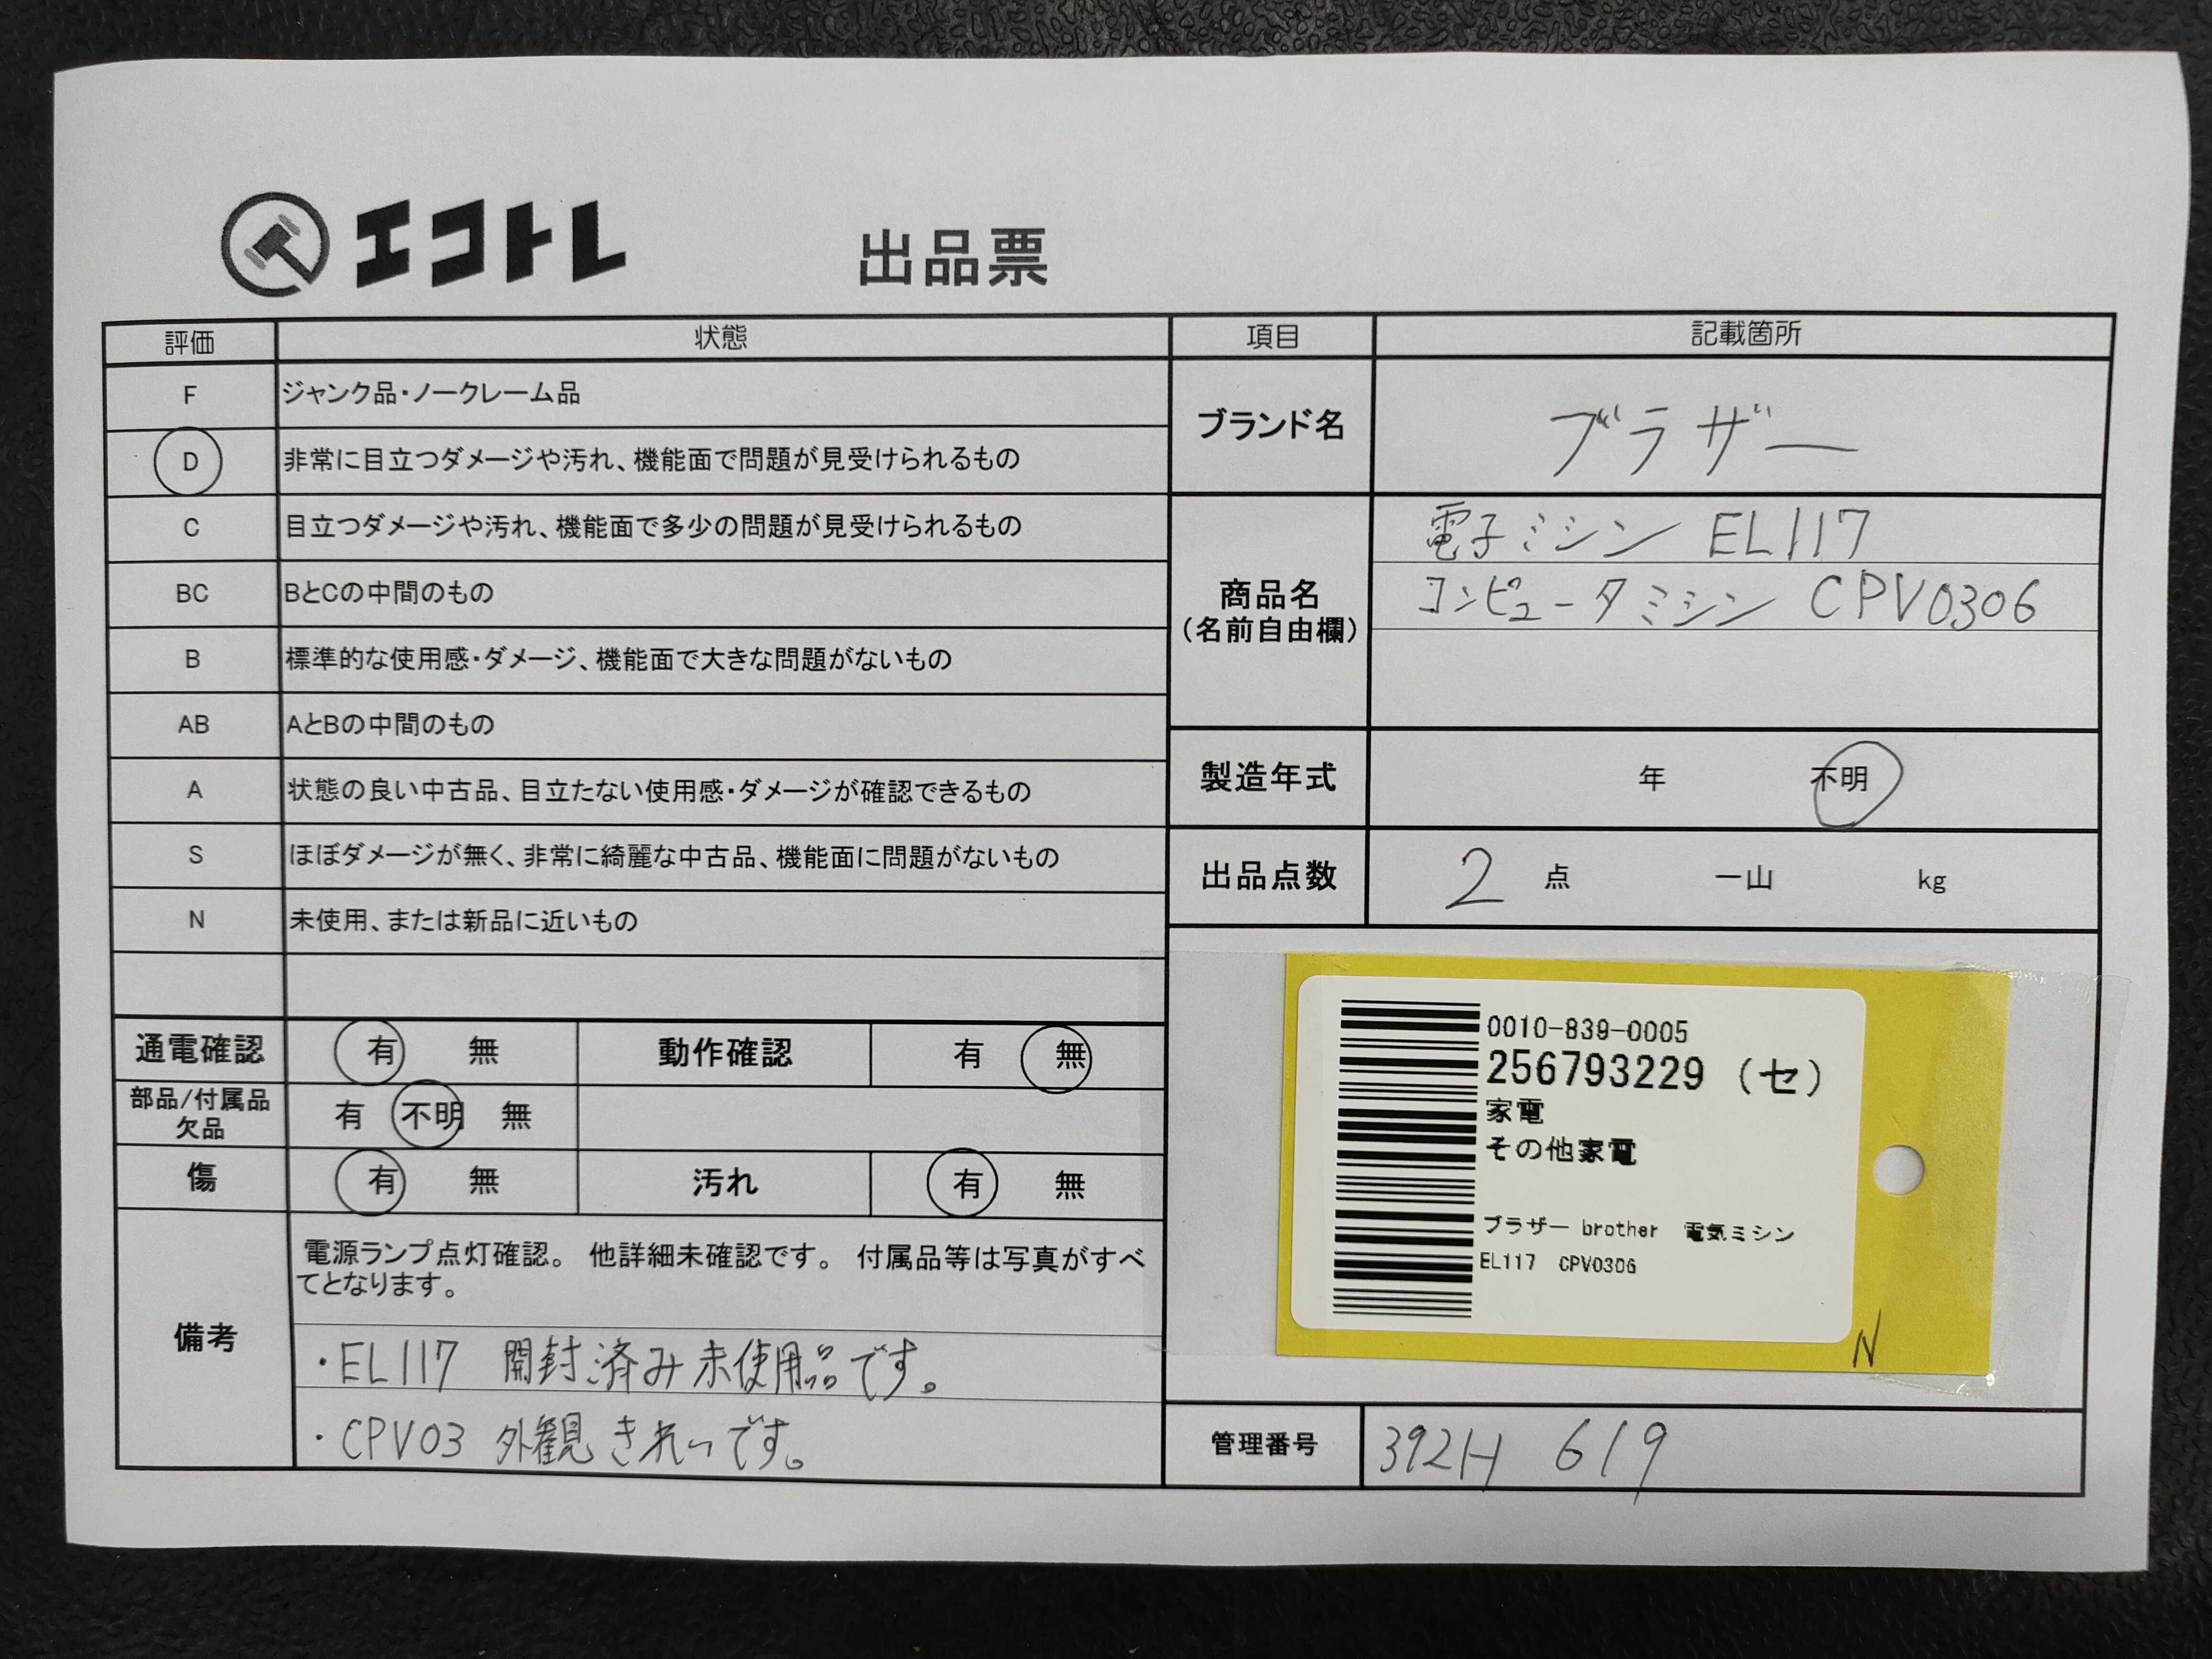 エコトレ 出品票
評価 状態 項目 記載箇所
F ジャンク品・ノークレーム品
D 非常に目立つダメージや汚れ、機能面で問題が見受けられるもの
C 目立つダメージや汚れ、機能面で多少の問題が見受けられるもの
BC BとCの中間のもの
B 標準的な使用感・ダメージ、機能面で大きな問題がないもの
AB AとBの中間のもの
A 状態の良い中古品、目立たない使用感・ダメージが確認できるもの
S ほぼダメージが無く、非常に綺麗な中古品、機能面に問題がないもの
N 未使用、または新品に近いもの
通電確認 有 無 動作確認 有 無
部品/付属品
欠品 有 不明 無
傷 有 無 汚れ 有 無
備考
電源ランプ点灯確認。 他詳細未確認です。 付属品等は写真がすべ
てとなります。
・EL117 開封済み未使用品です。
・CPV03 外観きれいです。
ブランド名 ブラザー
商品名
(名前自由欄)
電子ミシン EL117
コンピュータミシン CPV0306
製造年式 年 不明
出品点数 2 点 一山 kg
0010-839-0005
256793229 (セ)
家電
その他家電
ブラザー brother 電気ミシン
EL117 CPV0306
N
管理番号 392H 619